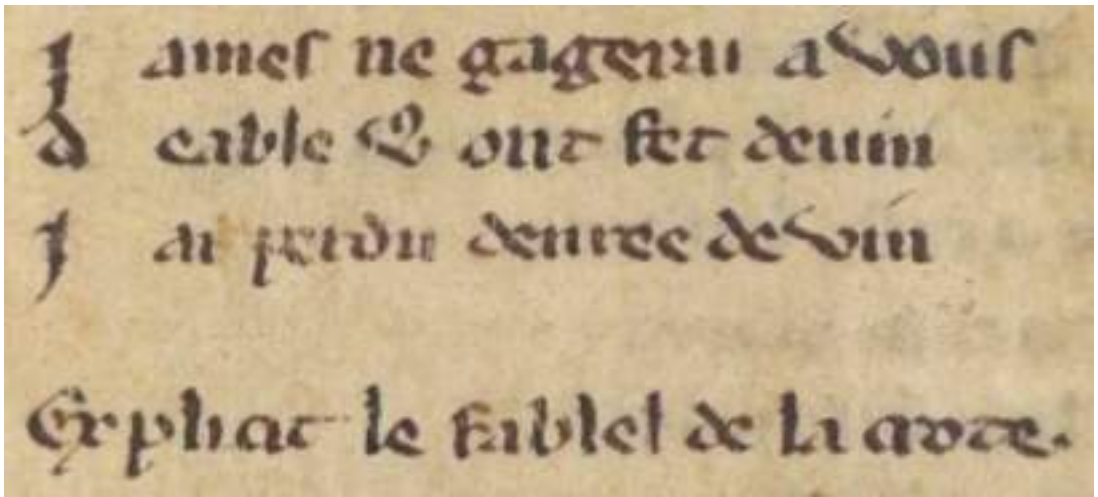 James ne gagerai a vous
deable & ont fet deuin
J ai perdu denree de vin
Explicit le fablel de la crote.